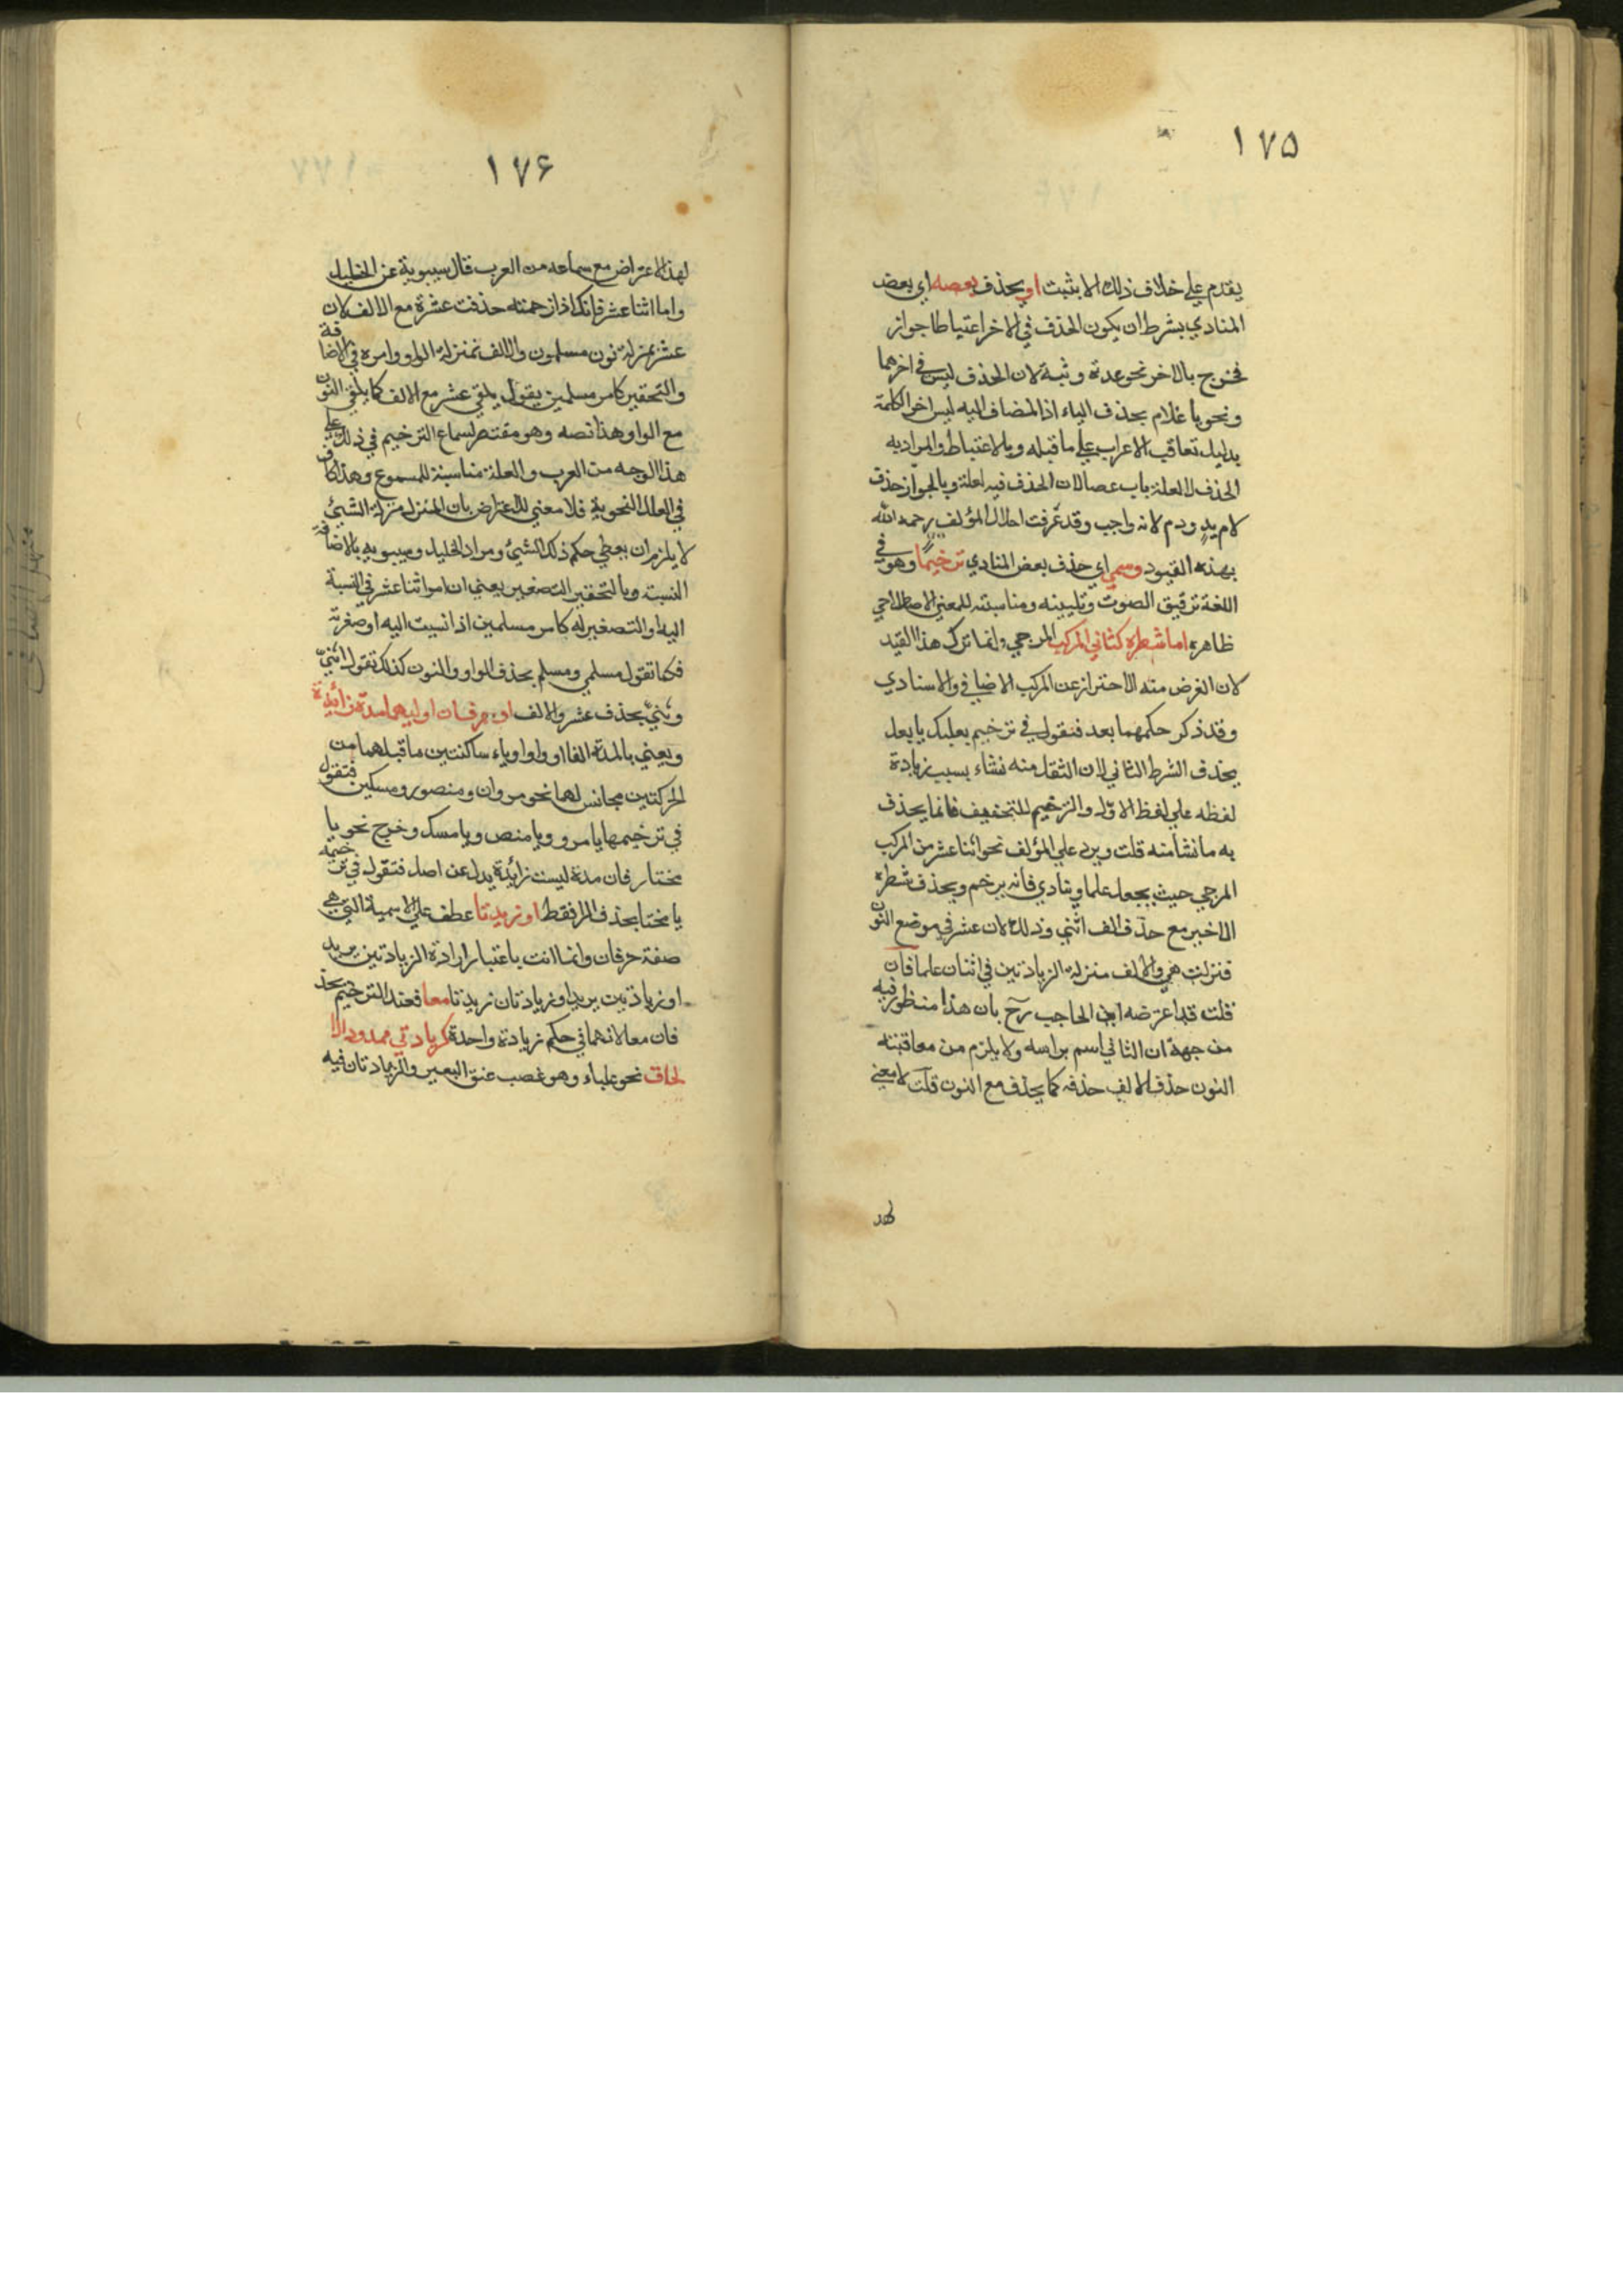 ١٧٥
يقدم علي خلاف ذلك الا بثبت او يحذف بعضه اي بعض
المنادي بشرط ان يكون الحذف في الاخر اعتباطا جواز
فخرج بالاخر نحو عدة وثبة لان الحذف ليس في اخرهما
ونحو يا غلام بحذف الياء اذ المضاف اليه ليس اخر الكلمة
بدليل تعاقب الاعراب علي ما قبله وبالاعتباط والمراد به
الحذف لا لعلة باب عصا لان الحذف فيه لعلة وبالجواز حذف
لام يد ودم لانه واجب وقد عرفت اخلال المؤلف رحمه الله
بهذه القيود وسمي اي حذف بعض المنادي ترخيما وهو في
اللغة ترقيق الصوت وتليينه ومناسبته للمعني الاصطلاحي
ظاهرة اما شطره كثاني المركب المزجي وانما ترك هذا القيد
لان الغرض منه الاحتراز عن المركب الاضافي والاسنادي
وقد ذكر حكمهما بعد فنقول في ترخيم بعلبك يا بعل
بحذف الشرط الثاني لان الثقل منه نشاء بسبب زيادة
لفظه علي لفظ الاول والترخيم للتخفيف فانما يحذف
به ما نشأ منه قلت ويرد علي المؤلف نحو اثنا عشر من المركب
المزجي حيث يجعل علما وينادي فانه يرخم ويحذف شطره
الاخير مع حذف الف اثني وذلك لان عشر في موضع النون
فنزلت هي والالف منزلة الزيادتين في اثنان علما فان
قلت قد اعترضه ابن الحاجب رح بان هذا منظور فيه
من جهة ان الثاني اسم براسه ولا يلزم من معاقبته
النون حذف الالف حذفه كما يحذف مع النون قلت لا معني
لهذ
١٧۶
لهذ الاعتراض مع سماعه من العرب قال سيبوية عن الخليل
واما اثنا عشر فانك اذا رحمته حذفت عشرة مع الالف لان
عشر بمنزلة نون مسلمون والالف بمنزلة الواو وامره في الاضافة
والتحقير كامر مسلمين يقول يلقي عشر مع الالف كما يلقي النون
مع الواو هذا نصه وهو مقتض لسماع الترخيم في ذلك علي
هذا الوجه من العرب والعلة مناسبة للمسموع وهذا كاف
في العلل النحوية فلا معني للاعتراض بان المنزل منزلة الشيئ
لا يلزم ان يعطي حكم ذلك الشيئ ومراد الخليل وسيبويه بالاضافة
النسبة وبالتحقير التصغير يعني ان امر اثنا عشر في النسبة
اليه او التصغير له كامر مسلمين اذا نسبت اليه او صغرته
فكما تقول مسلمي ومسلم بحذف الواو والنون كذلك تقول اثنيّ
وثنيّ بحذف عشر والالف او حرفان اوليهما مدة زائدة
ويعني بالمدة الفا او واوا وياء ساكنتين ما قبلهما من
الحركتين مجانس لهما نحو مروان ومنصور ومسكين فتقول
في ترخيمها يا مرو ويا منص ويا مسك وخرج نحو يا
مختار فان مدة ليست زائدة بدل عن اصل فتقول في ترخيمه
يا مختا بحذف الرا فقط او زيدتا عطف علي الاسمية التي هي
صفة حرفان وانما انت باعتبار ارادة الزيادتين يريد
او زيادتين يريد او زيادتان زيدتا معا فعند الترخيم يحذ
فان معا لانهما في حكم زيادة واحدة كزيادتي ممدود الا
لحاق نحو علباء وهو عصب عنق البعير والزيادتان فيه